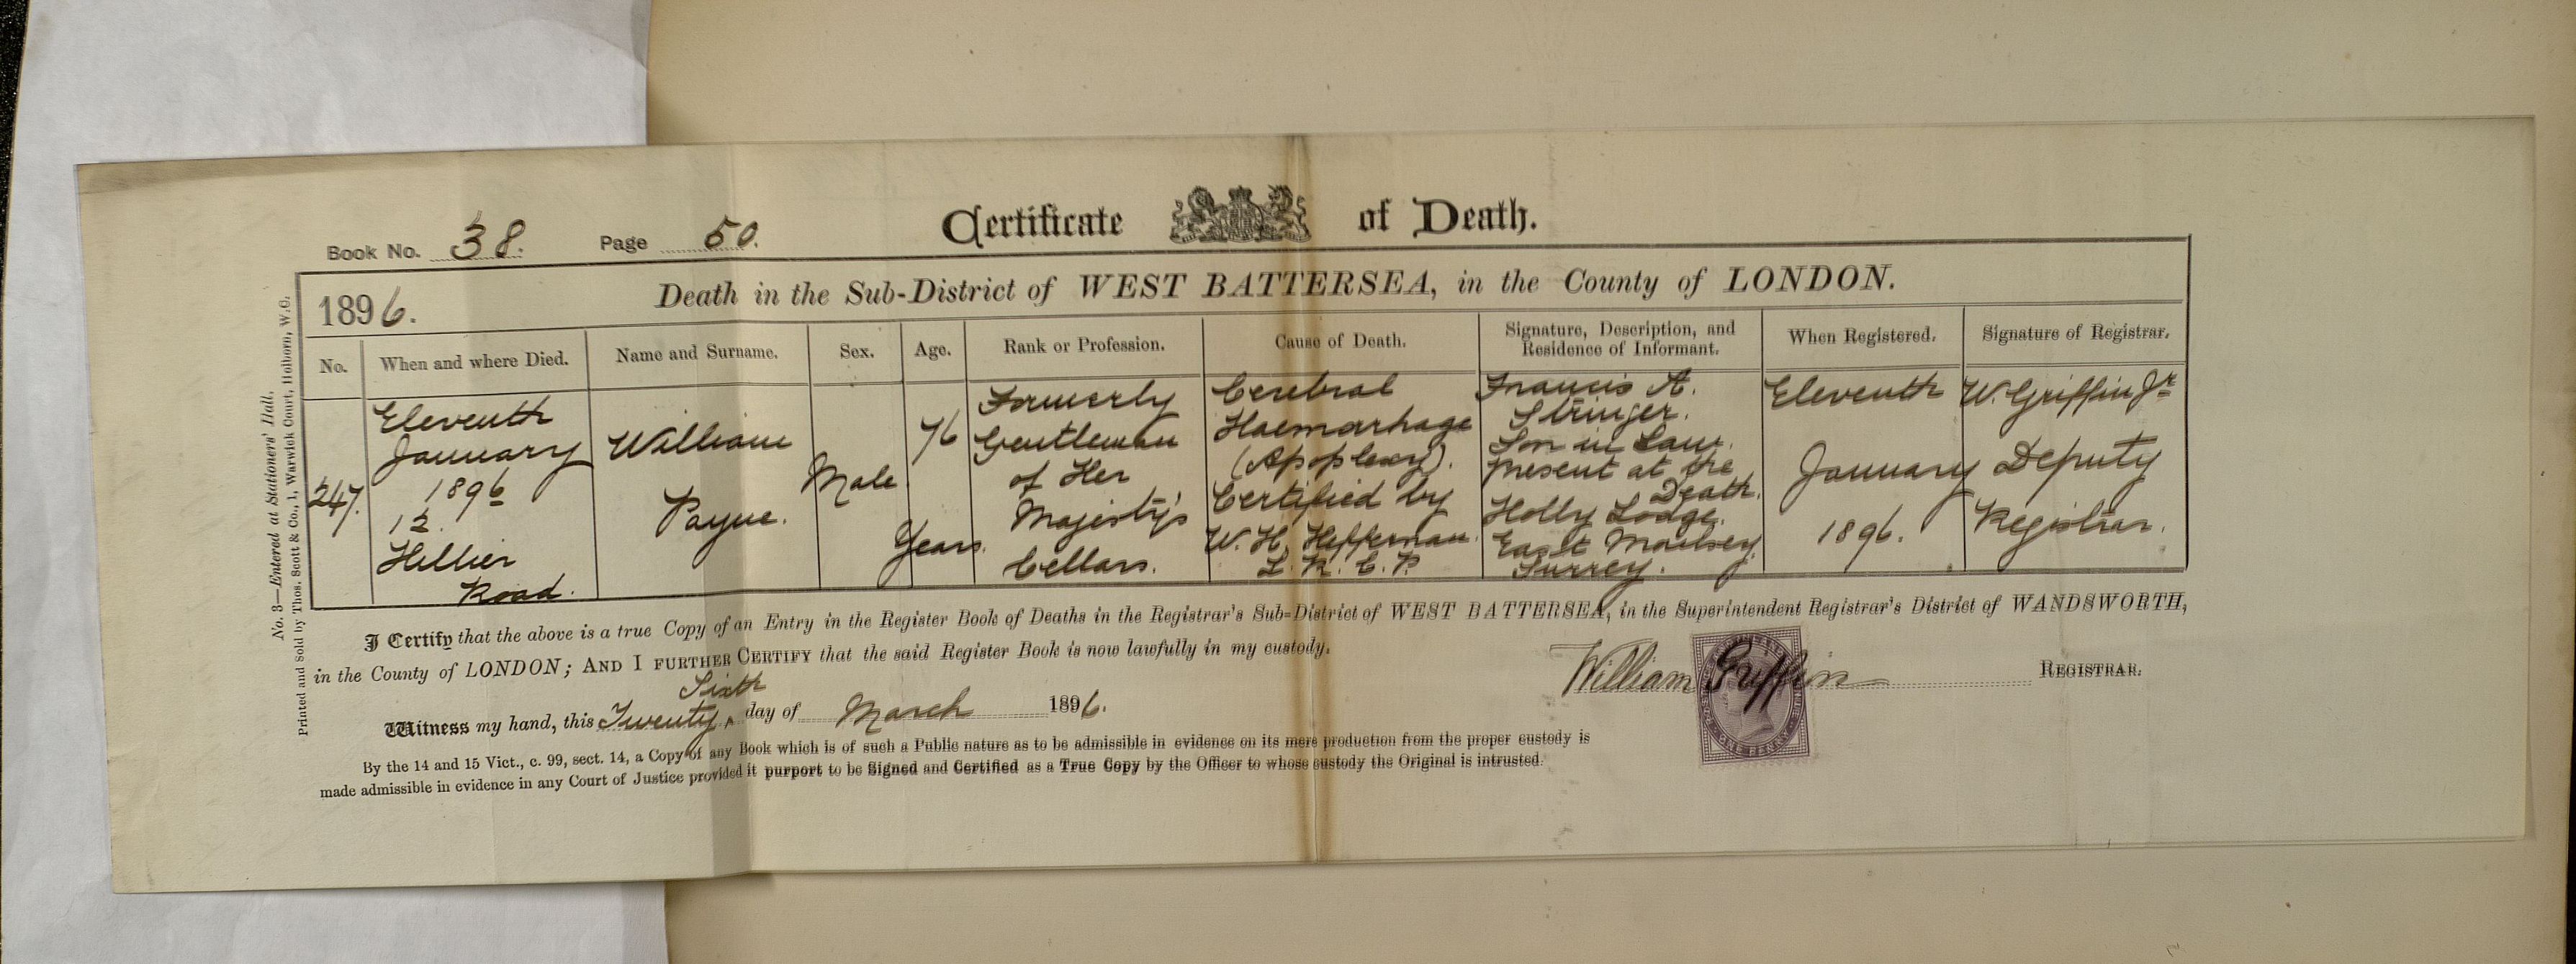 Certificate of Death.
Book No. 38. Page 50.
1896. Death in the Sub-District of WEST BATTERSEA, in the County of LONDON.
No. When and where Died. Name and Surname. Sex. Age. Rank or Profession. Cause of Death. Signature, Description, and Residence of Informant. When Registered. Signature of Registrar.
247.
Eleventh
January
1896
12.
Hellier
Road.
William
Payne.
Male
76
Years.
Formerly
Gentleman
of Her
Majesty's
Cellars.
Cerebral
Haemorrhage
(Apoplexy).
Certified by
W. H. Heffernan.
L. R. C. P.
Francis A.
Stringer.
Son in Law.
Present at the
Death.
Holly Lodge.
East Moulsey
Surrey.
Eleventh
January
1896.
W. Griffin Jr
Deputy
Registrar.
I Certify that the above is a true Copy of an Entry in the Register Book of Deaths in the Registrar's Sub-District of WEST BATTERSEA, in the Superintendent Registrar's District of WANDSWORTH,
in the County of LONDON; AND I FURTHER CERTIFY that the said Register Book is now lawfully in my custody.
William Griffin REGISTRAR.
Sixth
Witness my hand, this Twenty day of March 1896.
By the 14 and 15 Vict., c. 99, sect. 14, a Copy of any Book which is of such a Public nature as to be admissible in evidence on its mere production from the proper custody is
made admissible in evidence in any Court of Justice provided it purport to be Signed and Certified as a True Copy by the Officer to whose custody the Original is intrusted.
ONE PENNY
No. 3—Entered at Stationers' Hall.
Printed and Sold by Thos. Scott & Co., 1, Warwick Court, Holborn, W.C.